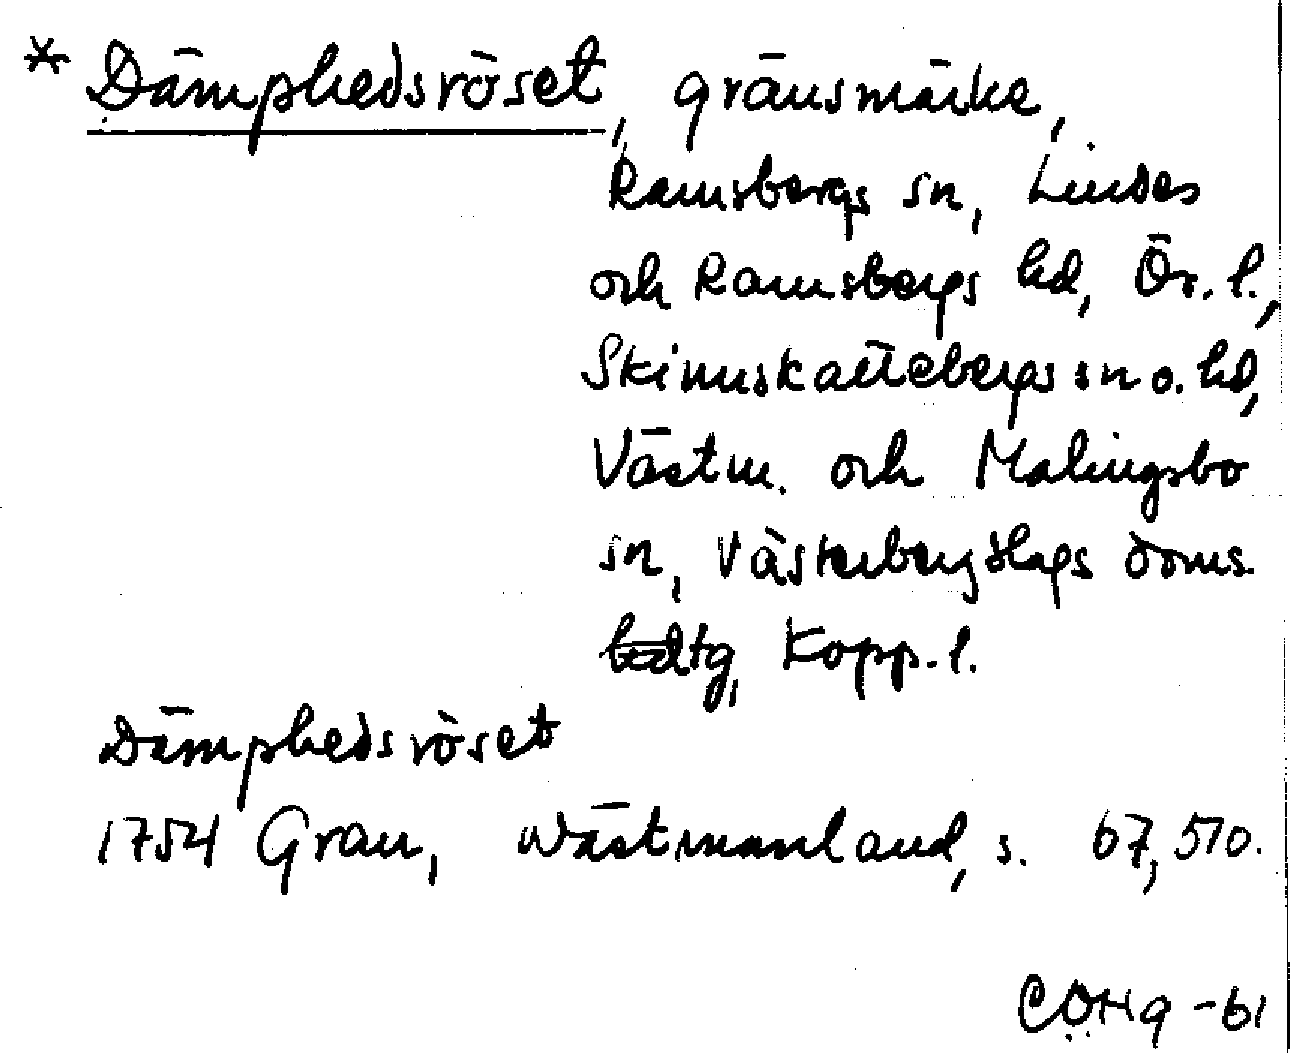 * Dämphedsröset, gränsmärke,
Ramsbergs sn, Lindes
och Ramsbergs hd, Ör. l.,
Skinnskattebergs sn o. hd,
Västm. och Malingsbo
sn, Västerbergslags doms.
tg, Kopp. l.
Dämphedsröset
1754 Grau, Wästmanland, s. 67, 510.
CÖHg -61